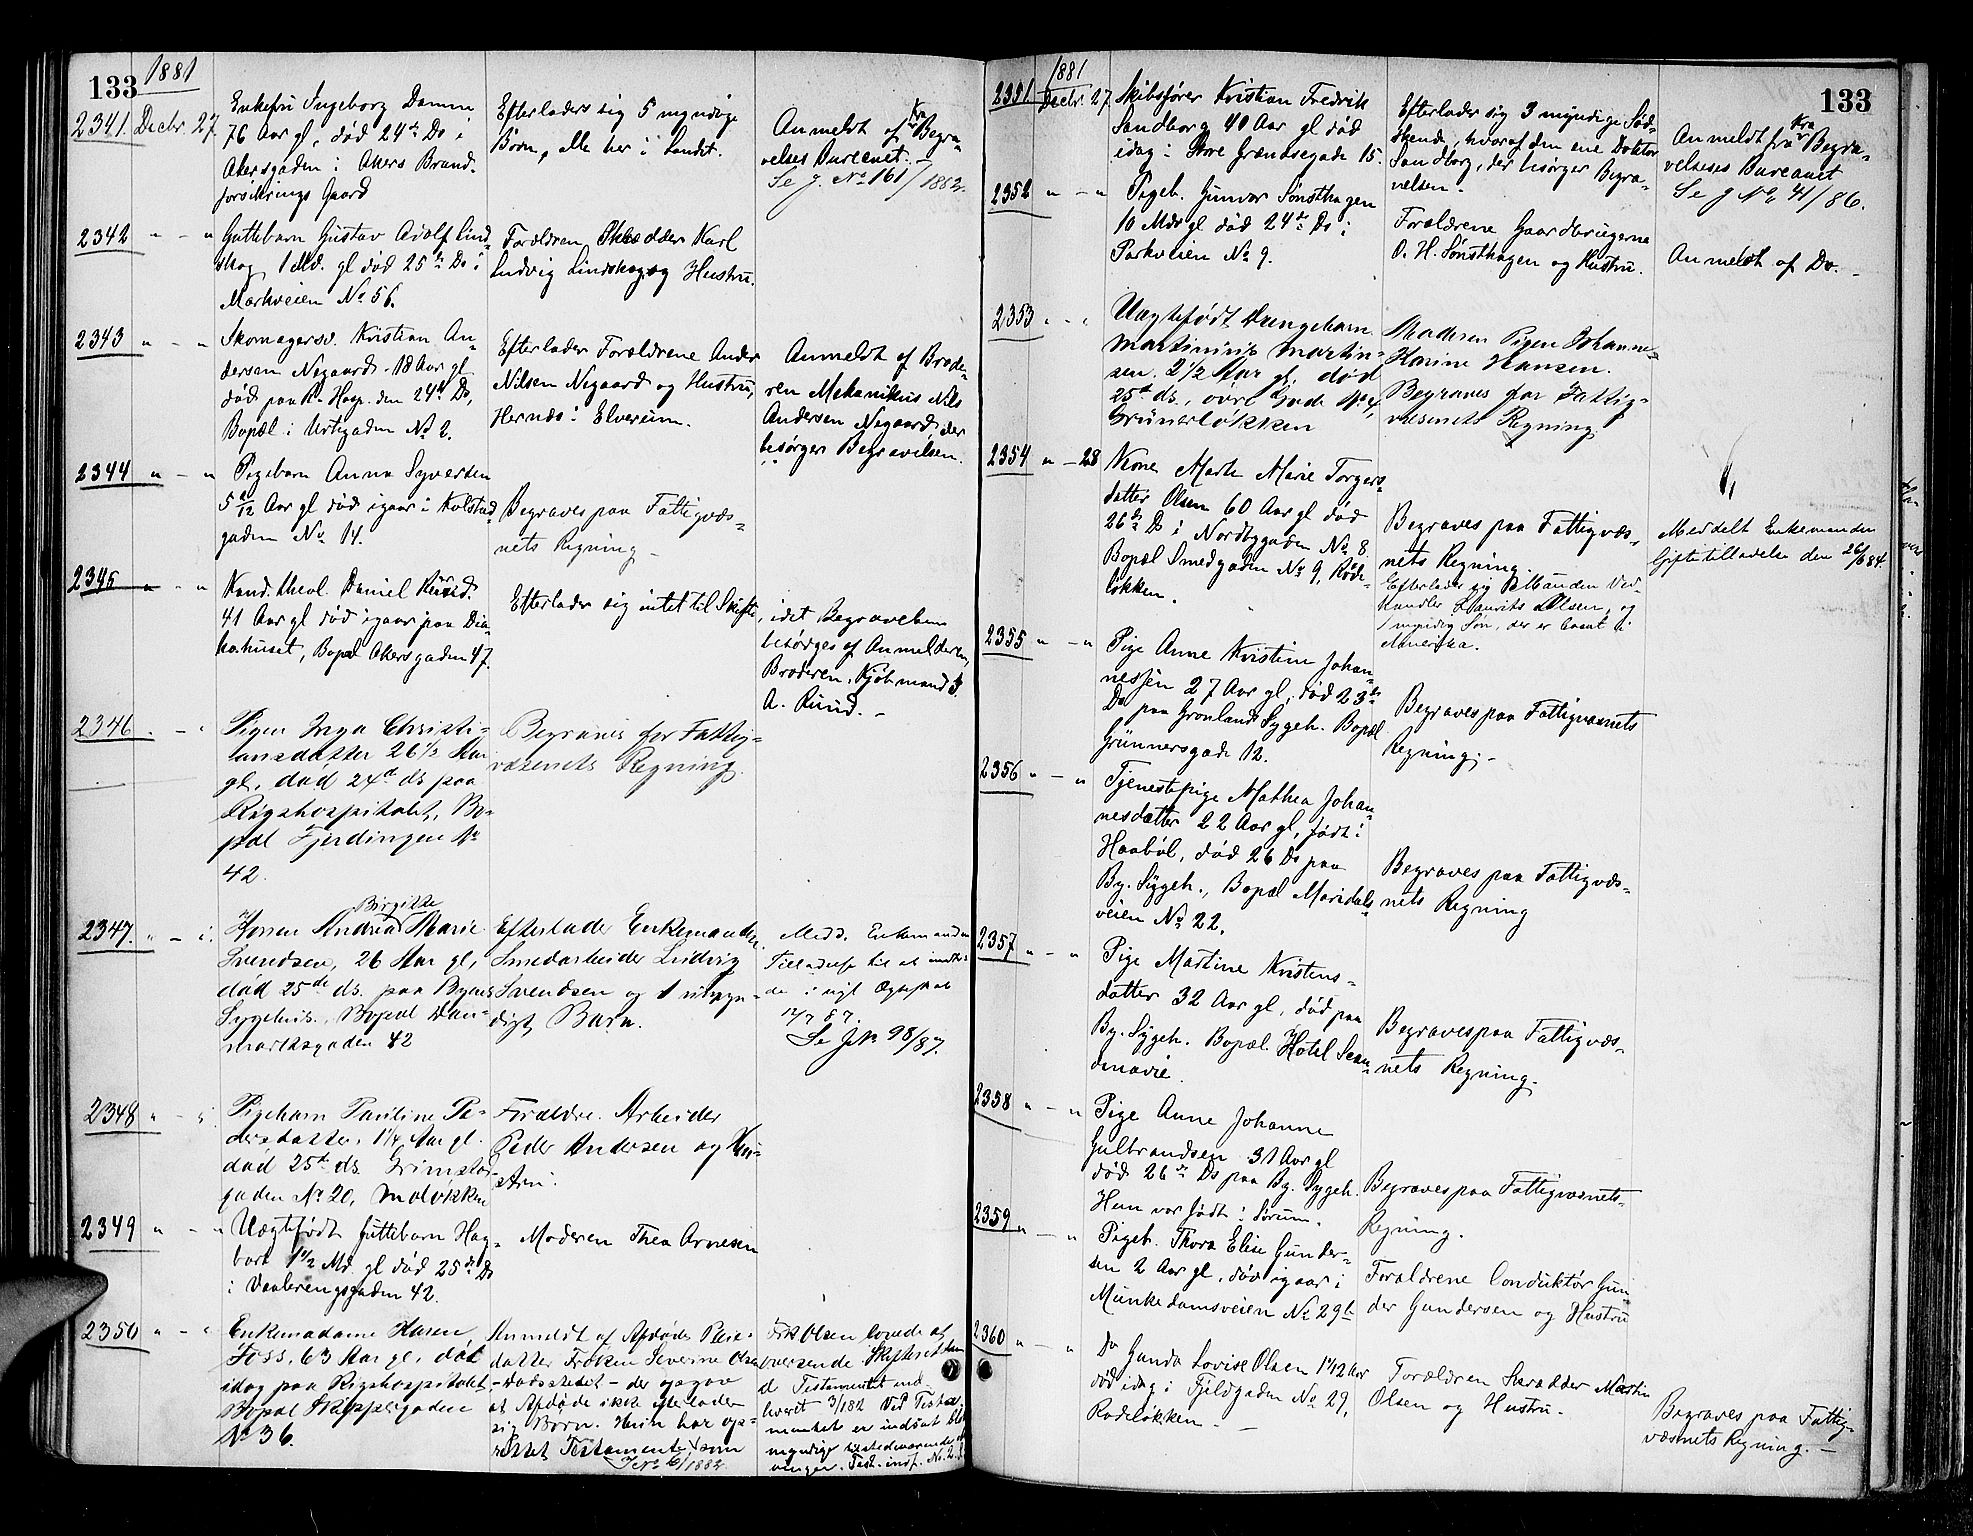 133
1881
2341. Decbr. 27.
Enkefru Ingeborg Damm
76 Aar gl, død 24de Ds i
Akersgaden i Akers Brand-
forsikrings Gaard
Efterladers sig 5 myndige
Børn, alle her i Landet.
Anmeldt af Kra Begra-
velses Bureauet. -
Se J. No 161/1882.
2342 " - "
Guttebarn Gustav Adolf Lind-
skog 1 Md. gl død 25de Ds i
Markveien No 56.
Forældren Skrædder Karl
Ludvig Lindskog og Hustru.
2343 " - "
Skomagersv. Kristian An-
dersen Negaard 18 Aar gl
død paa R. Hosp. den 24de Ds,
Bopæl i Urtegaden No 2.
Efterlader Forældrene Ander
Nilsen Negaard og Hustru,
Hernæs i Elverum.
Anmeldt af Brode-
ren Mekanikus Nils
Andersen Negaard, der
besørger Begravelsen.
2344 " - "
Pigebarn Anna Syversen
5 /12 Aar gl død igaar i Kolstad-
gaden No 14.
Begraves paa Fattigvæs-
nets Regning -
2345 " - "
Kand. theol. Daniel Ruud.
41 Aar gl død igaar paa Dia-
kohuset, Bopæl Akersgaden 47.
Efterlader sig intet til Skifte,
idet Begravelsen
besørges af Anmelderen,
Broderen, Kjøbmand J.
A. Ruud. -
2346 . - "
Pigen Inga Christi-
ansdatter 26 1/2 Aar
gl, død 24de ds paa
Rigshospitalet, Bo-
pæl Fjerdingen No
42.
Begraves for Fattig-
væsenets Regning.
2347. " - "
Konen Andrea Birgitte Marie
Svendsen, 26 Aar gl,
død 25de ds. paa Byens
Sygehus, Bopæl Dan-
marksgaden 42
Efterlader Enkemanden
Smedarbeider Ludvig
Svendsen og 1 umyn-
digt Barn.
Medd. Enkemanden
Tilladelse til at indtræ-
de i nyt Ægteskab
12/7 87.
Se J No 98/87.
2348 " - "
Pigebarn Pauline Pe-
dersdatter, 1 1/4 Aar gl.
død 25de ds. Grimstad-
gaden No 20, Indløkken
Forældre. Arbeider
Peder Andersen og Hu-
stru.
2349 " - "
Uægtefødt Guttebarn Hag-
bart 1 1/2 Md. gl død 25de Ds
i Vaalerengsgaden 42.
Moderen Thea Arnesen
2350 " - "
Enkemadame Karen
Foss, 63 Aar gl, død
idag paa Rigshospitalet,
Bopæl Skippergaden
No 36.
Anmeldt af Afdødes Pleie-
datter Frøken Severine Olsen
- Dødsstedet - der opgav
at Afdøde ikke efterlader
sig Børn. Hun har op-
rettet Testamente, som
J No 6/1882
Frk Olsen lovede at
oversende Skifteretten
Testamentet ind-
leveret 3/1 82 Ved Testa-
mentet er indsat
myndige tilstedeværende
Test. indf. No. 2.
133
1881
2351 Decbr. 27
Skibsfører Kristian Fredrik
Sandborg 40 Aar gl død
idag i Store Grændsegade 15.
Efterlader sig 3 myndige Sød-
skende, hvoraf den ene Doktor
Sandborg, der besørger Begra-
velsen.
Anmeldt fra Kra Begra-
velseses Bureauet
Se J No 41/86.
2352 " - "
Pigeb. Gunvor Sønsthagen
10 Mdr gl død 24de Ds i
Parkveien No 9.
Forældrene Gaardbrugerne
O. H. Sønsthagen og Hustru.
Anmeldt af Do. -
2353 " - "
Uægtefødt Drengebarn
Martinius Martin-
sen. 2 1/2 Aar gl. død
25de ds., øvre Gade No 4,
Grünerløkken
Moderen Pigen Johanne
Karine Hansen.
Begraves for Fattig-
væsenets Regning.
2354 " - 28
Kone Marte Marie Torgers-
datter Olsen 60 Aar gl død
26de Ds i Nordbygaden No 8.
Bopæl Smedgaden No 9, Røde-
løkken.
Begraves paa Fattigvæs-
nets Regning.
Efterlader sig Manden Ved-
handler Laurits Olsen, og
1 myndig Søn, der er bosat i
Amerika.
Meddelt Enkemanden
Giftetilladelse den 26/6 84.
2355 " - "
Pige Anne Kristine Johan-
nessen 27 Aar gl, død 23de
Ds paa Grønlands Sygeh. Bopæl
Grünnersgade 12.
Begraves paa Fattigvæsnets
Regning. -
2356 " - "
Tjenestepige Mathea Johan-
nesdatter 22 Aar gl, født i
Haabøl, død 26 Ds paa
By. Sygeh., Bopæl Maridals-
veien No 22.
Begraves paa Fattigvæs-
nets Regning
2357 " - "
Pige Martine Kristens-
datter 32 Aar gl, død paa
By. Sygeh. Bopæl. Hotel Scan-
dinavie.
Begraves paa Fattigvæs-
nets Regning.
2358 " - "
Pige Anne Johanne
Gulbrandsen 31 Aar gl
død 26de Ds paa By. Sygeh.
Hun var født i Sørum.
Begraves paa Fattigvæsnets
Regning.
2359 " - "
Pigeb. Thora Elise Gunder-
sen 2 Aar gl, død igaar i
Munkedamsveien No 29b
Forældrene Conduktør Gun-
der Gundersen og Hustru
2360 " - "
Do Ganda Lovise Olsen 1 /12 Aar
død idag i Fjeldgaden No 29,
Rodeløkken -
Forældren Skrædder Martin
Olsen og Hustru -
Begraves paa Fattig-
væsnets Regning. -